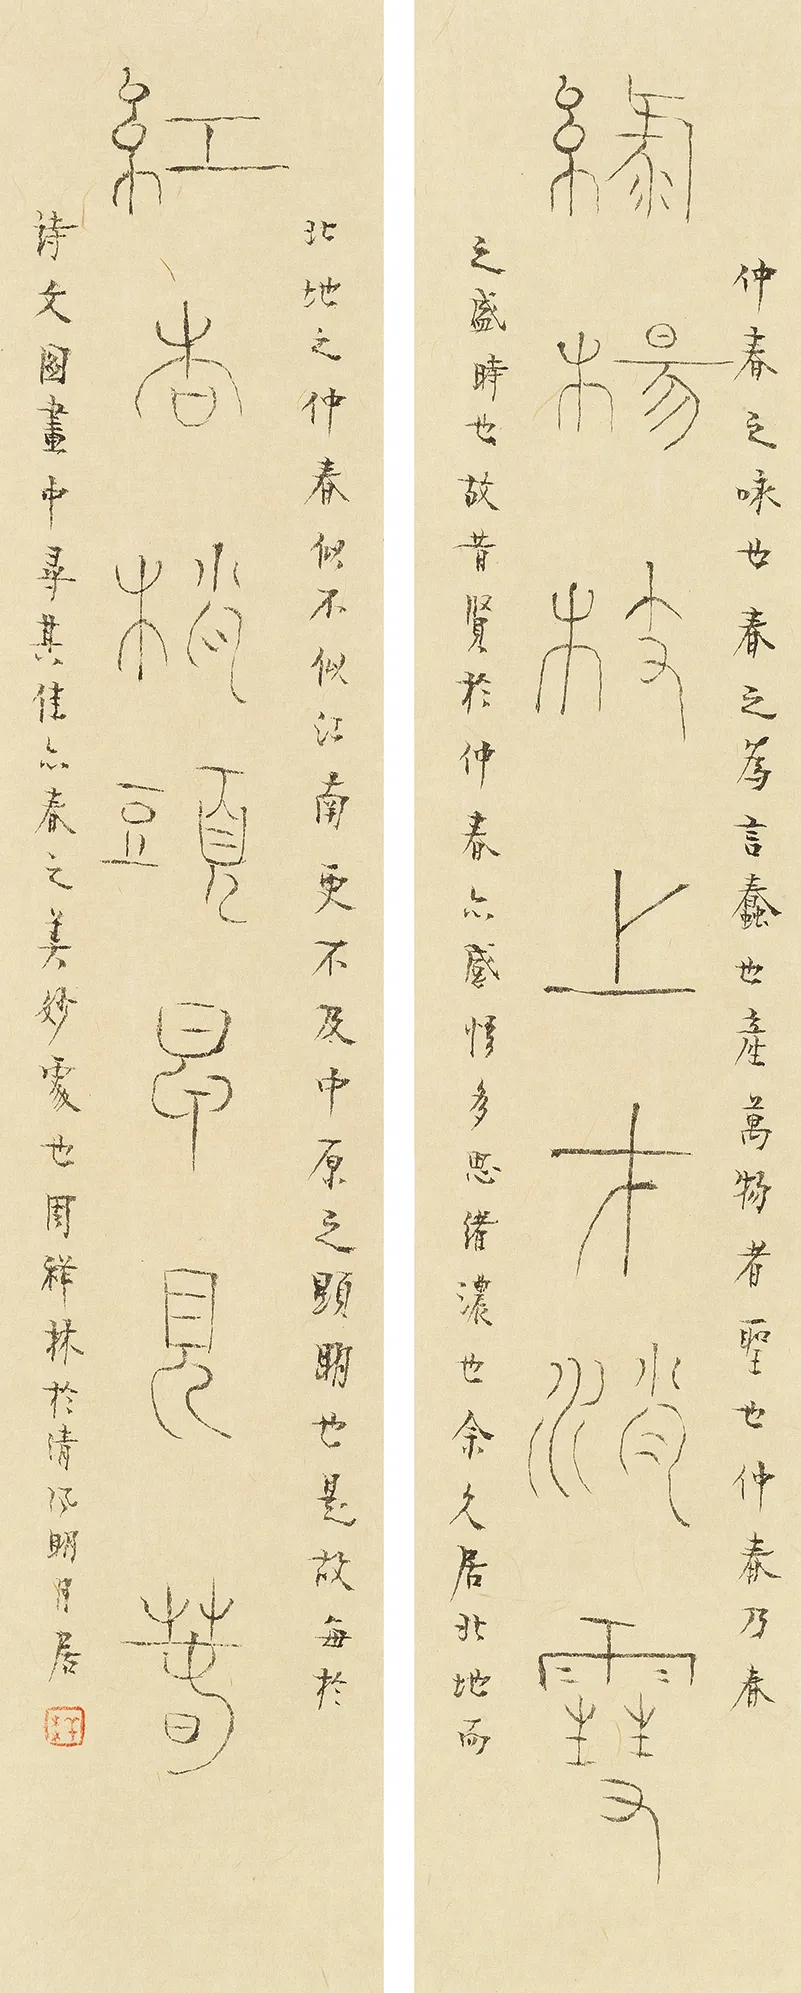 仲春之咏也春之為言蠢也產萬物者聖也仲春乃春
綠楊枝上才消雪
之盛時也故昔賢於仲春亦感情多思緒濃也余久居北地而
北地之仲春似不似江南更不及中原之顯明也是故每於
紅杏梢頭早見春
詩文圖畫中尋其佳亦春之美妙處也周祥林於清風明月居